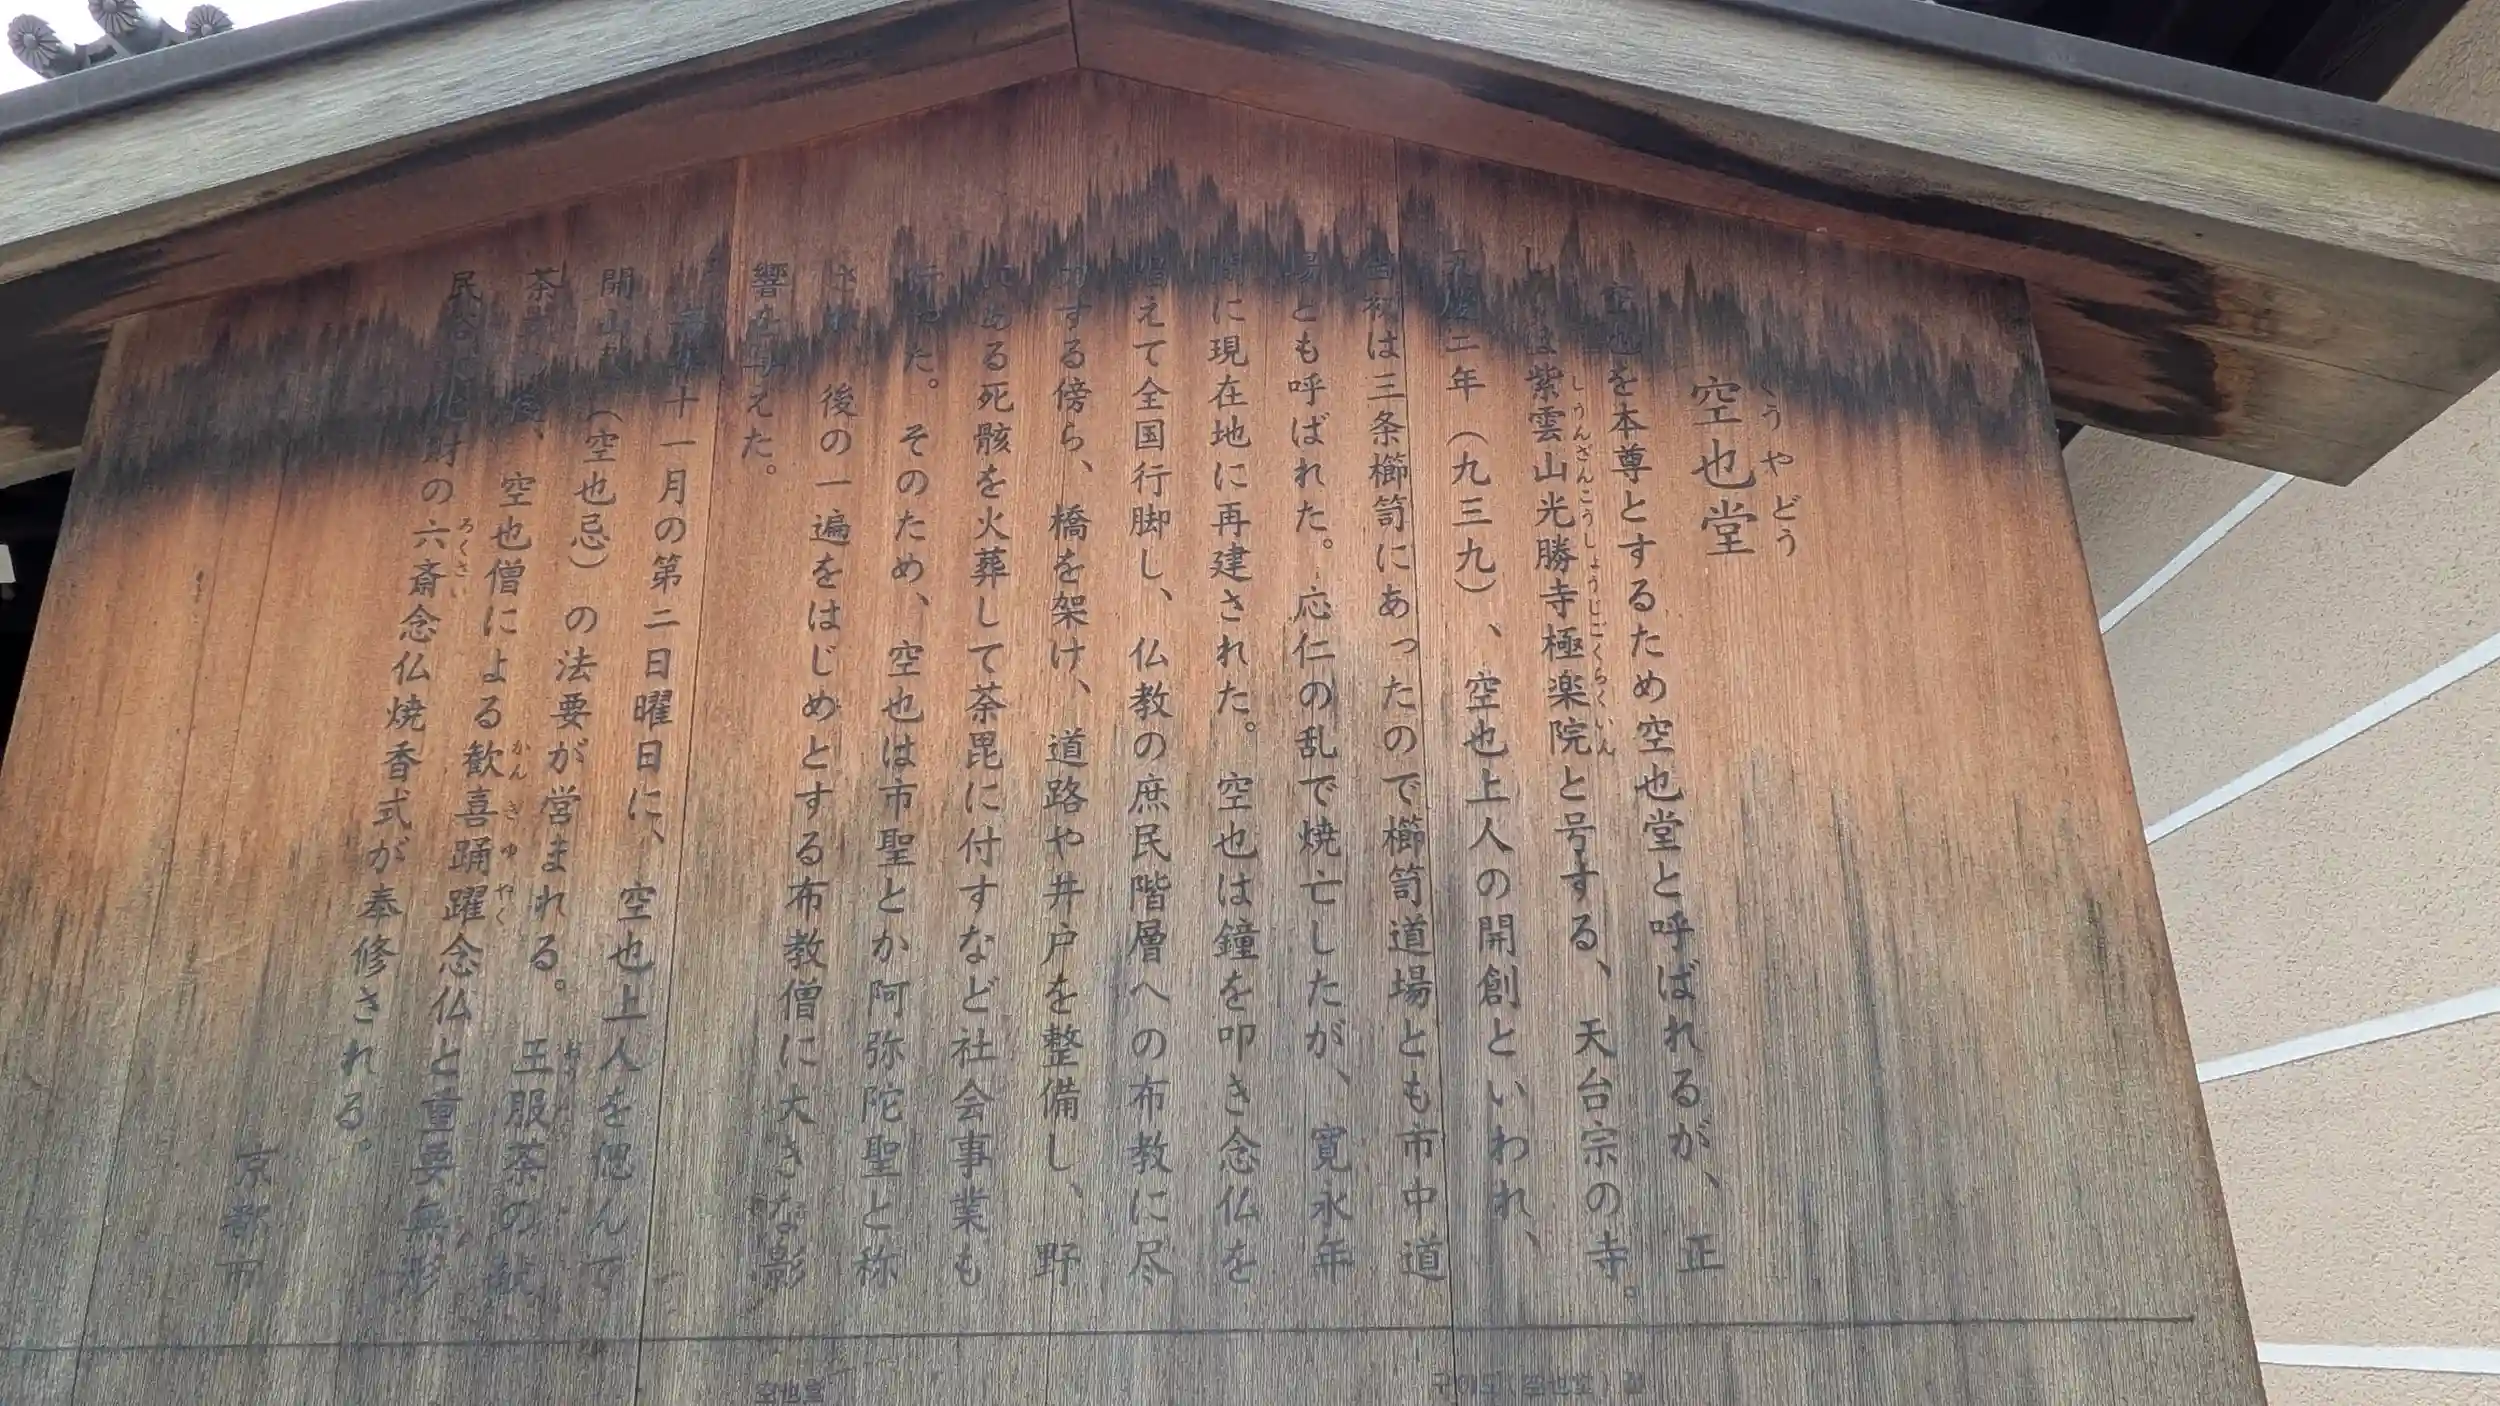 空也堂
くうやどう
空也を本尊とするため空也堂と呼ばれるが、正
しくは紫雲山光勝寺極楽院と号する、天台宗の寺。
しうんざんこうしょうじごくらくいん
天慶二年（九三九）、空也上人の開創といわれ、
当初は三条櫛笥にあったので櫛笥道場とも市中道
場とも呼ばれた。応仁の乱で焼亡したが、寛永年
間に現在地に再建された。空也は鐘を叩き念仏を
唱えて全国行脚し、仏教の庶民階層への布教に尽
力する傍ら、橋を架け、道路や井戸を整備し、野
にある死骸を火葬して荼毘に付すなど社会事業も
行った。そのため、空也は市聖とか阿弥陀聖と称
され、後の一遍をはじめとする布教僧に大きな影
響を与えた。
毎年十一月の第二日曜日に、空也上人を偲んで
開山忌（空也忌）の法要が営まれる。王服茶の献
おうぶく
茶式の後、空也僧による歓喜踊躍念仏と重要無形
かんきゆやく
民俗文化財の六斎念仏焼香式が奉修される。
ろくさい
京都市